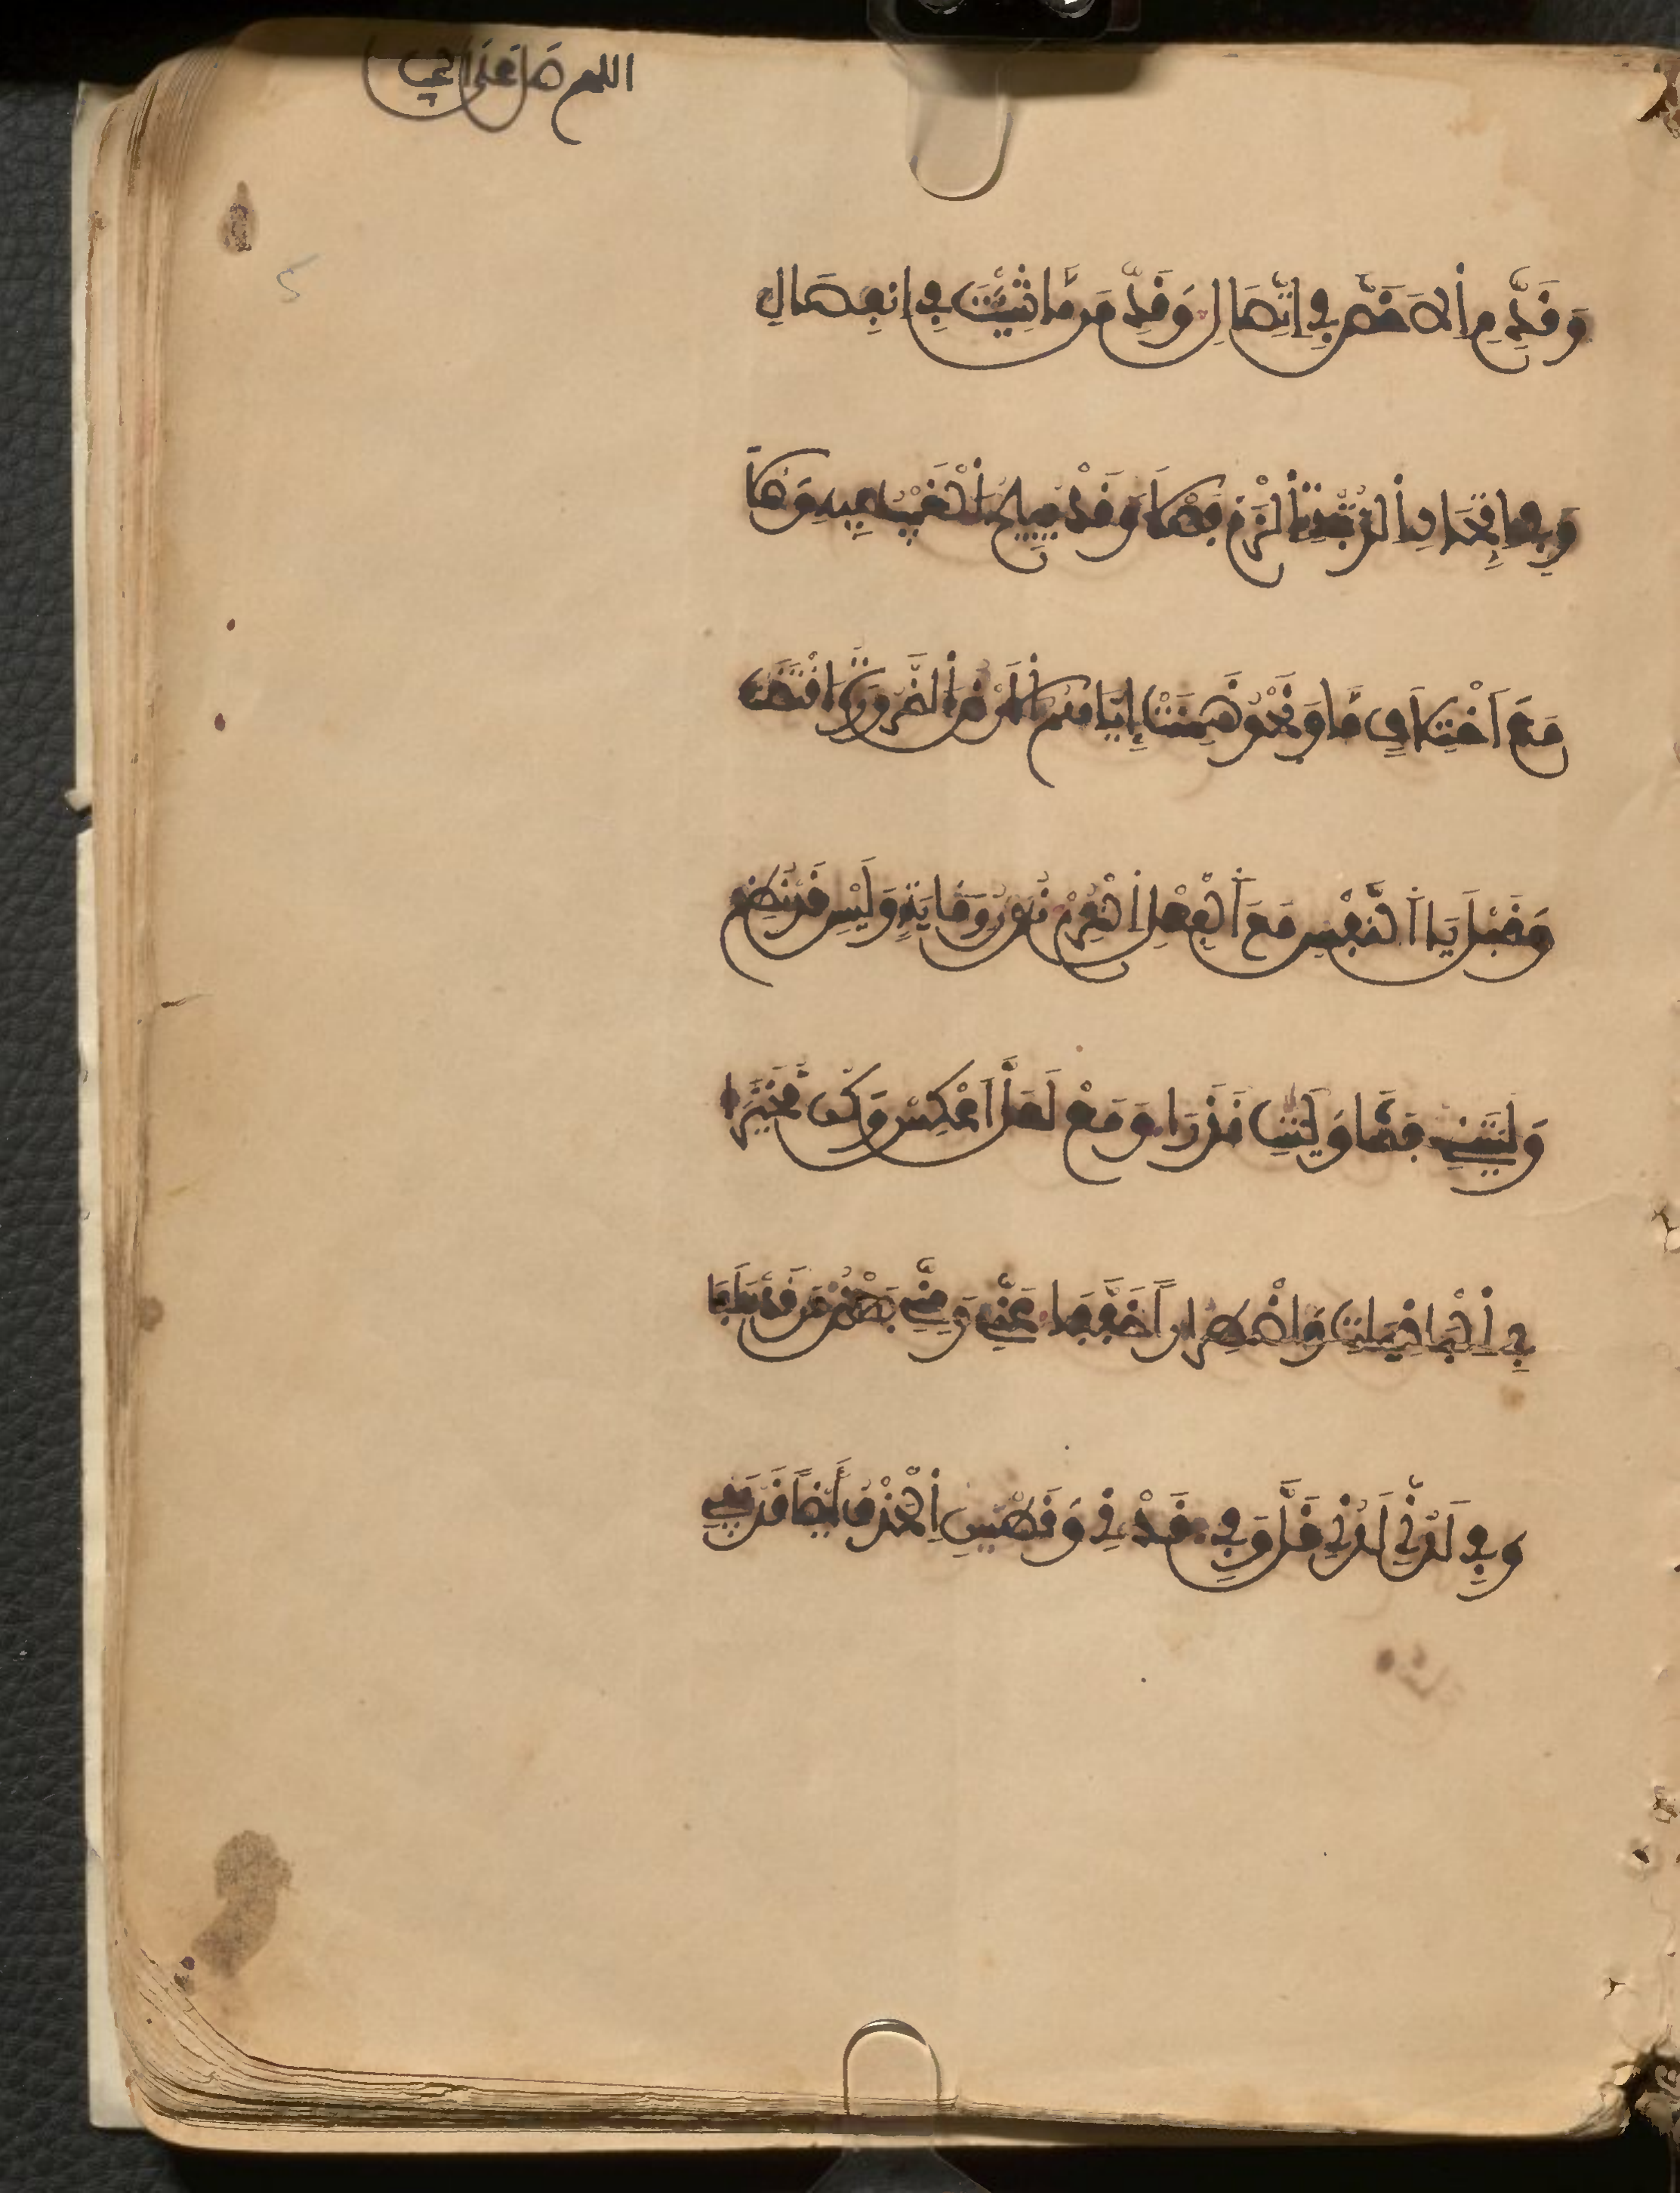 اللهم صل على النبي
وَقَدِّمِ الْأَخَصَّ فِي اتِّصَالِ وَقَدِّمَن مَّا شِئْتَ فِي انفِصَالِ
وَفِي اتِّحَادِ الرُّتْبَةِ الْزَمْ فَصْلَا وَقَدْ يُبِيحُ الْغَيْبُ فِيهِ وَصْلَا
مَعَ اخْتِلَافٍ مَّا وَنَحْوُ ضَمِنَتْ إِيَّاهُمُ الْأَرْضُ الضَّرُورَةُ اقْتَضَتْ
وَقَبْلَ يَا النَّفْسِ مَعَ الْفِعْلِ الْتُزِمْ نُونُ وِقَايَةٍ وَلَيْسِي قَدْ نُظِمْ
وَلَيْتَنِي فَشَا وَلَيْتِي نَدَرَا وَمَعْ لَعَلَّ اعْكِسْ وَكُن مُّخَيَّرَا
فِي الْبَاقِيَاتِ وَاضْطِرَاراً خَفَّفَا مِنِّي وَعَنِّي بَعْضُ مَن قَدْ سَلَفَا
وَفِي لَدُنِّي لَدُنِي قَلَّ وَفِي قَدْنِي وَقَطْنِي الْحَذْفُ أَيْضاً قَدْ يَفِي